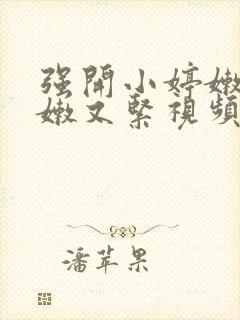 强開小婷嫩
嫩又緊視頻
潘苹果